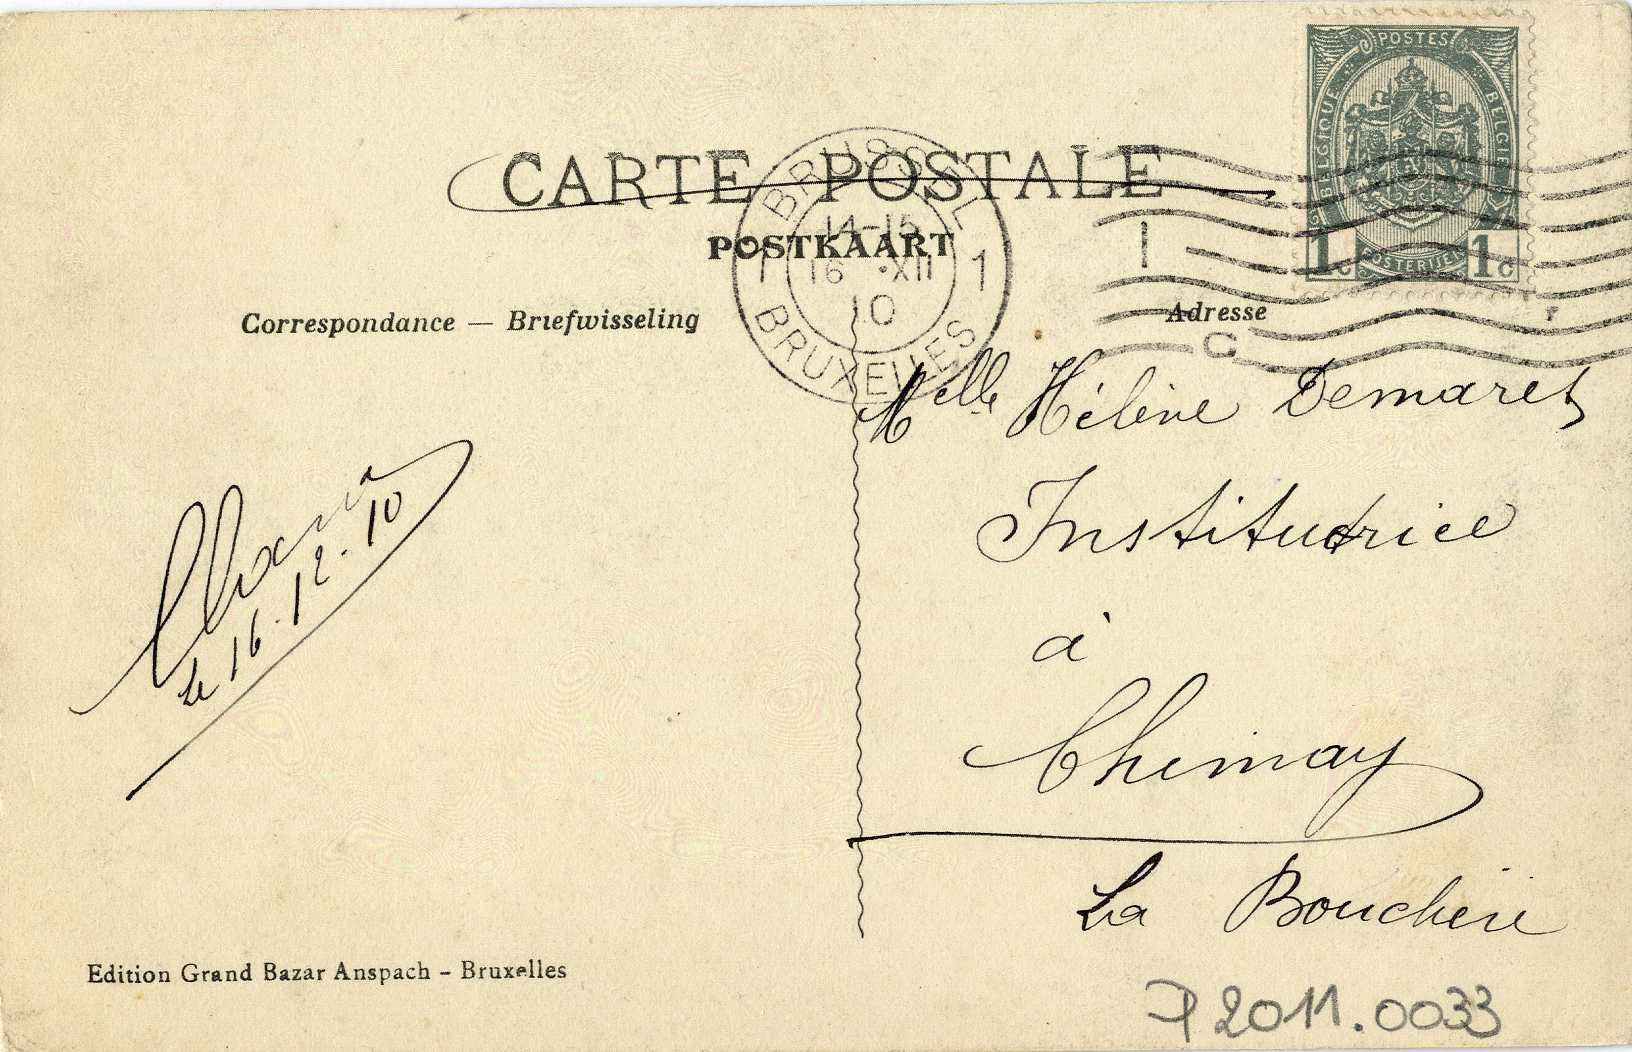 POSTES
BELGIQUE
BELGIË
1c POSTERIJEN 1c
CARTE POSTALE
POSTKAART
BRUSSEL
14-15
1 16 ·XII 1
10
BRUXELLES
1
C
Correspondance — Briefwisseling
Adresse
Melle Hélène Demaret
Institutrice
à
Chimay
La Boucherie
le 16.12.10
Edition Grand Bazar Anspach - Bruxelles
P2011.0033